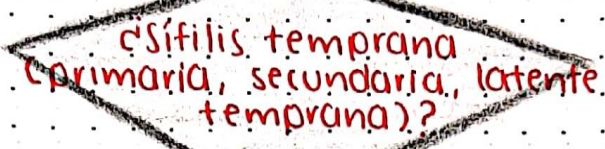 ¿Sífilis temprana
(primaria, secundaria, latente
temprana)?